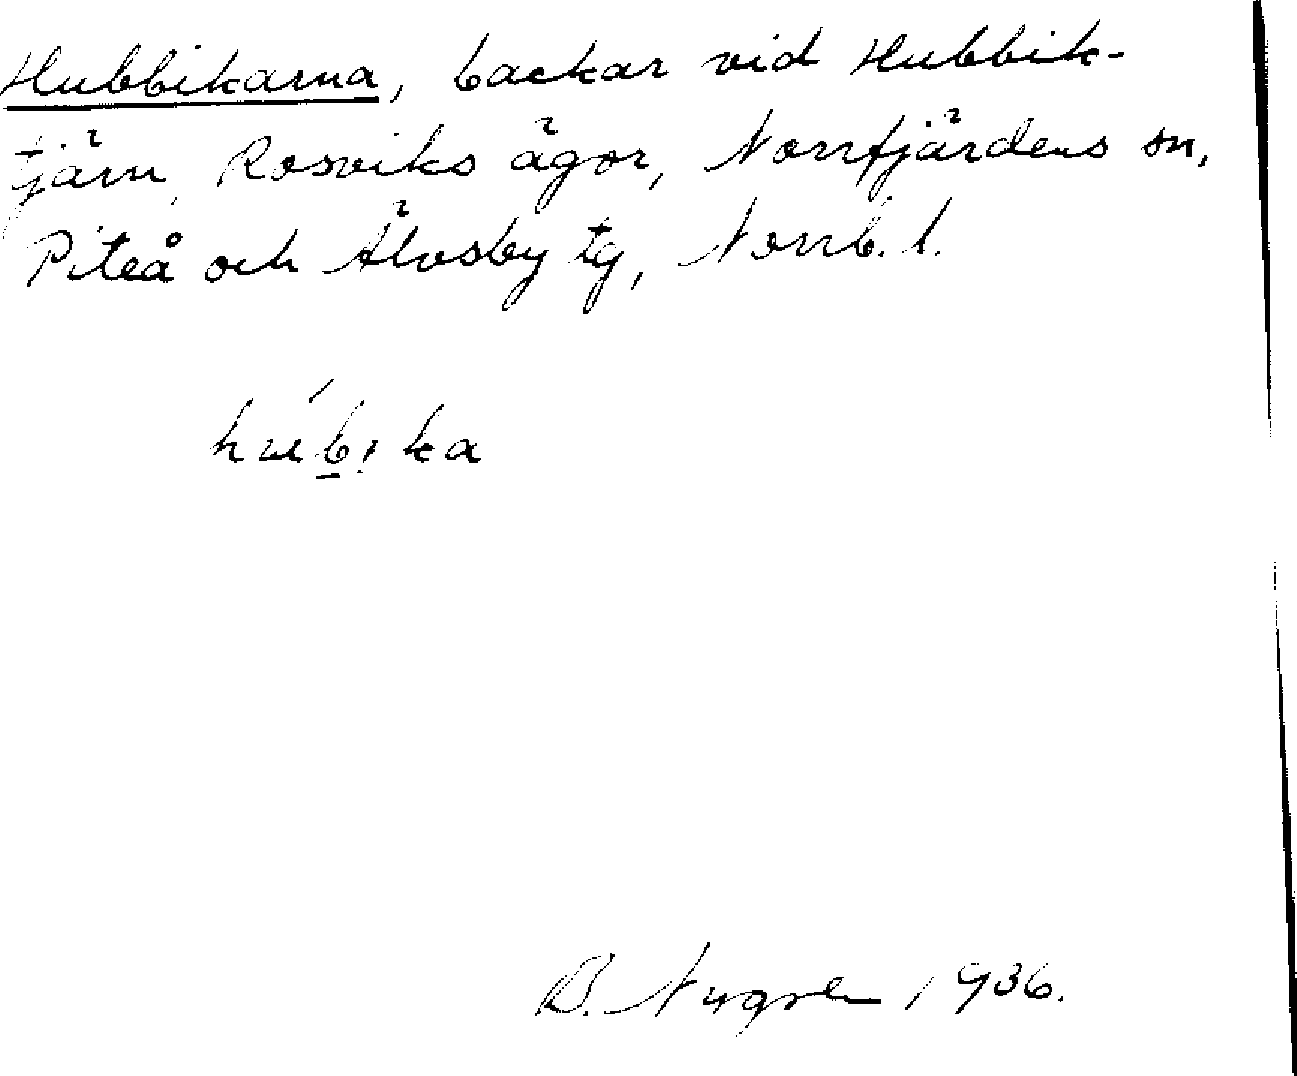 Hubbikarna, backar vid Hubbik-
tjärn, Rosviks ägor, Norrfjärdens sn,
Piteå och Älvsby tg, Norrb. l.
húbıka
B. Nygren 1936.